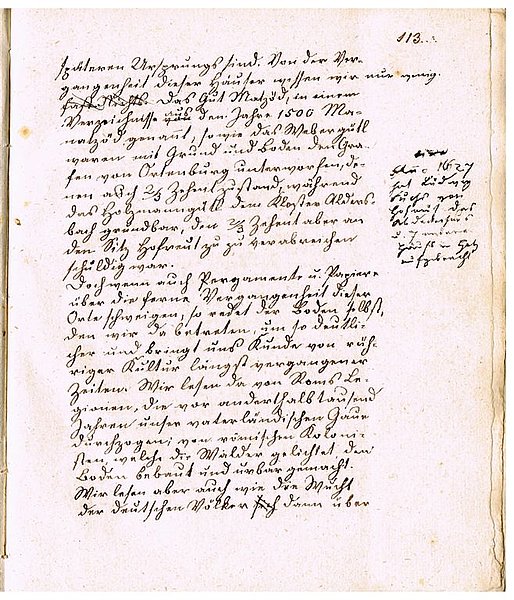 113.
späteren Ursprungs sind. Von der Ver-
gangenheit dieser Häuser wissen wir nur wenig.
fast Nichts. Das Gut Matzöd, in einem
Verzeichnisse aus dem Jahre 1500 Ma-
natzöd genannt, sowie das Webergütl
waren mit Grund und Boden den Gra-
fen von Ortenburg unterworfen, de-
nen auch 2/3 Zehent zustand, während
das Holzmanngütl dem Kloster Alders-
bach grundbar, den 2/3 Zehent aber an
den Sitz Hofreut zu zu verabreichen
schuldig war.
Doch wenn auch Pergamente u. Papiere
über die ferne Vergangenheit dieser
Orte schweigen, so redet der Boden selbst,
den wir da betreten, um so deutli-
cher und bringt uns Kunde von röh-
riger Kultur längst vergangener
Zeiten. Wir lesen da von Roms Le-
gionen, die vor anderthalb tausend
Jahren unser vaterländischen Gaue
durchzogen; von römischen Koloni-
sten, welche die Wälder gelichtet, den
Boden bebaut und urbar gemacht.
Wir lesen aber auch wie die Wucht
der deutschen Völker sich dann über
1627
hat Ludwig
Fuchs von
das
u.